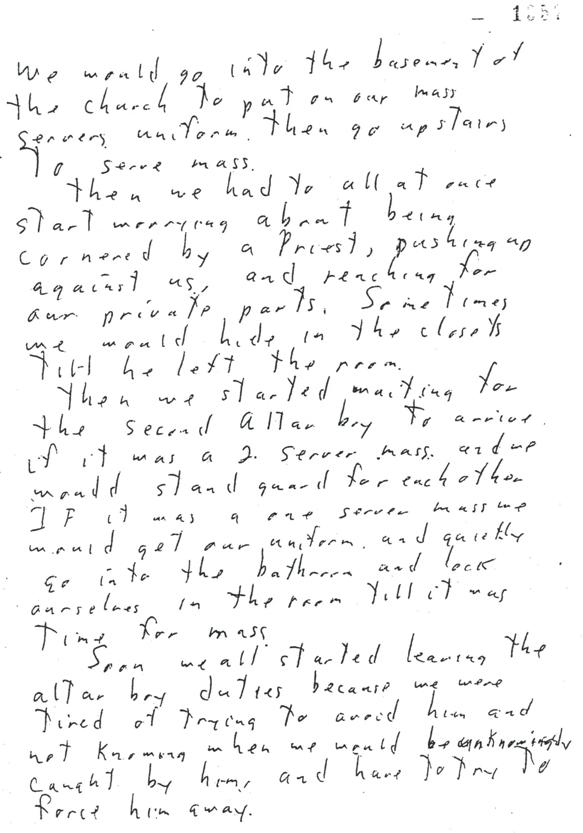 We would go into the basement of
the church to put on our mass
servers uniform. then go upstairs
To serve mass.
Then we had to all at once
start worrying about being
cornered by a Priest, pushing up
against us, and reaching for
our private parts. Sometimes
we would hide in the closets
till he left the room.
Then we started waiting for
the second Altar boy to arrive
if it was a 2 server mass. and we
would stand guard for each other
IF it was a one server mass we
would get our uniform. and quietly
go into the bathroom and lock
ourselves in the room till it was
Time for mass.
Soon we all started leaving the
altar boy duties because we were
tired of trying to avoid him and
not knowing when we would be unknowingly
caught by him, and have to try to
force him away.